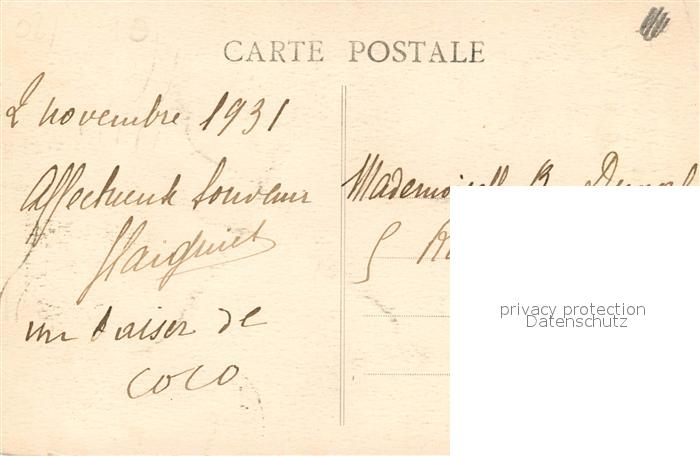 CARTE POSTALE
2 novembre 1931
Affectueux souvenir
un baiser de
COCO
Mademoiselle B.
5 R
privacy protection
Datenschutz